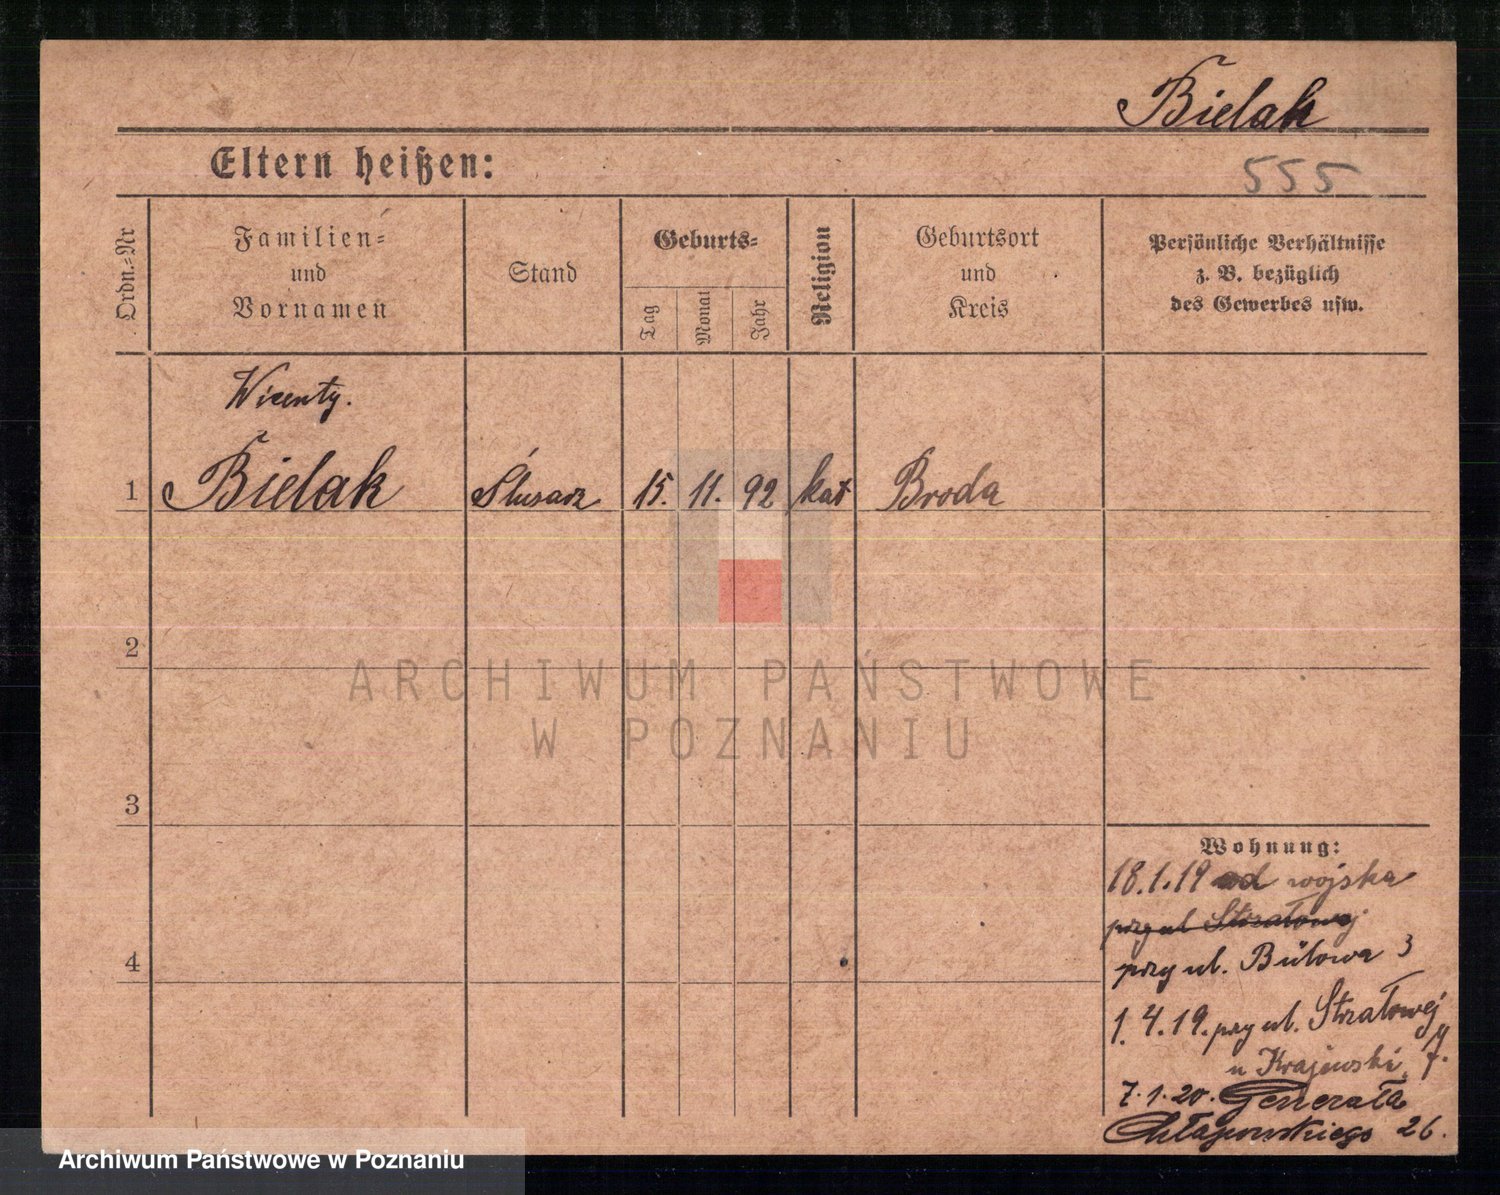 Bielak
Eltern heißen:
555
Ordn.-Nr
Familien-
und
Vornamen
Stand
Geburts-
Tag
Monat
Jahr
Religion
Geburtsort
und
Kreis
Persönliche Verhältnisse
z. B. bezüglich
des Gewerbes usw.
Wicenty.
1 Bielak Ślusarz 15. 11. 92 kat Broda
2
ARCHIWUM PAŃSTWOWE
W POZNANIU
3
Wohnung:
18.1.19 od wojska
przy ul Strzałowej
przy ul. Bülowa 3
4
1.4.19. przy ul. Strzałowej
7.
u Krajewski
7.1.20. Generała
Chłapowskiego 26.
Archiwum Państwowe w Poznaniu